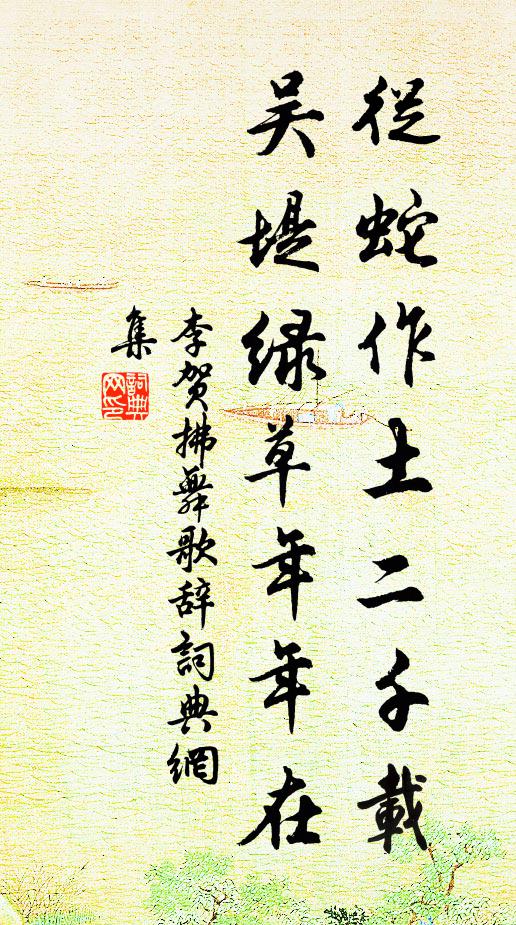 從蛇作土二千載
吴堤绿草年年在
李贺拂舞歌辞詞典網
集
詞典
网印